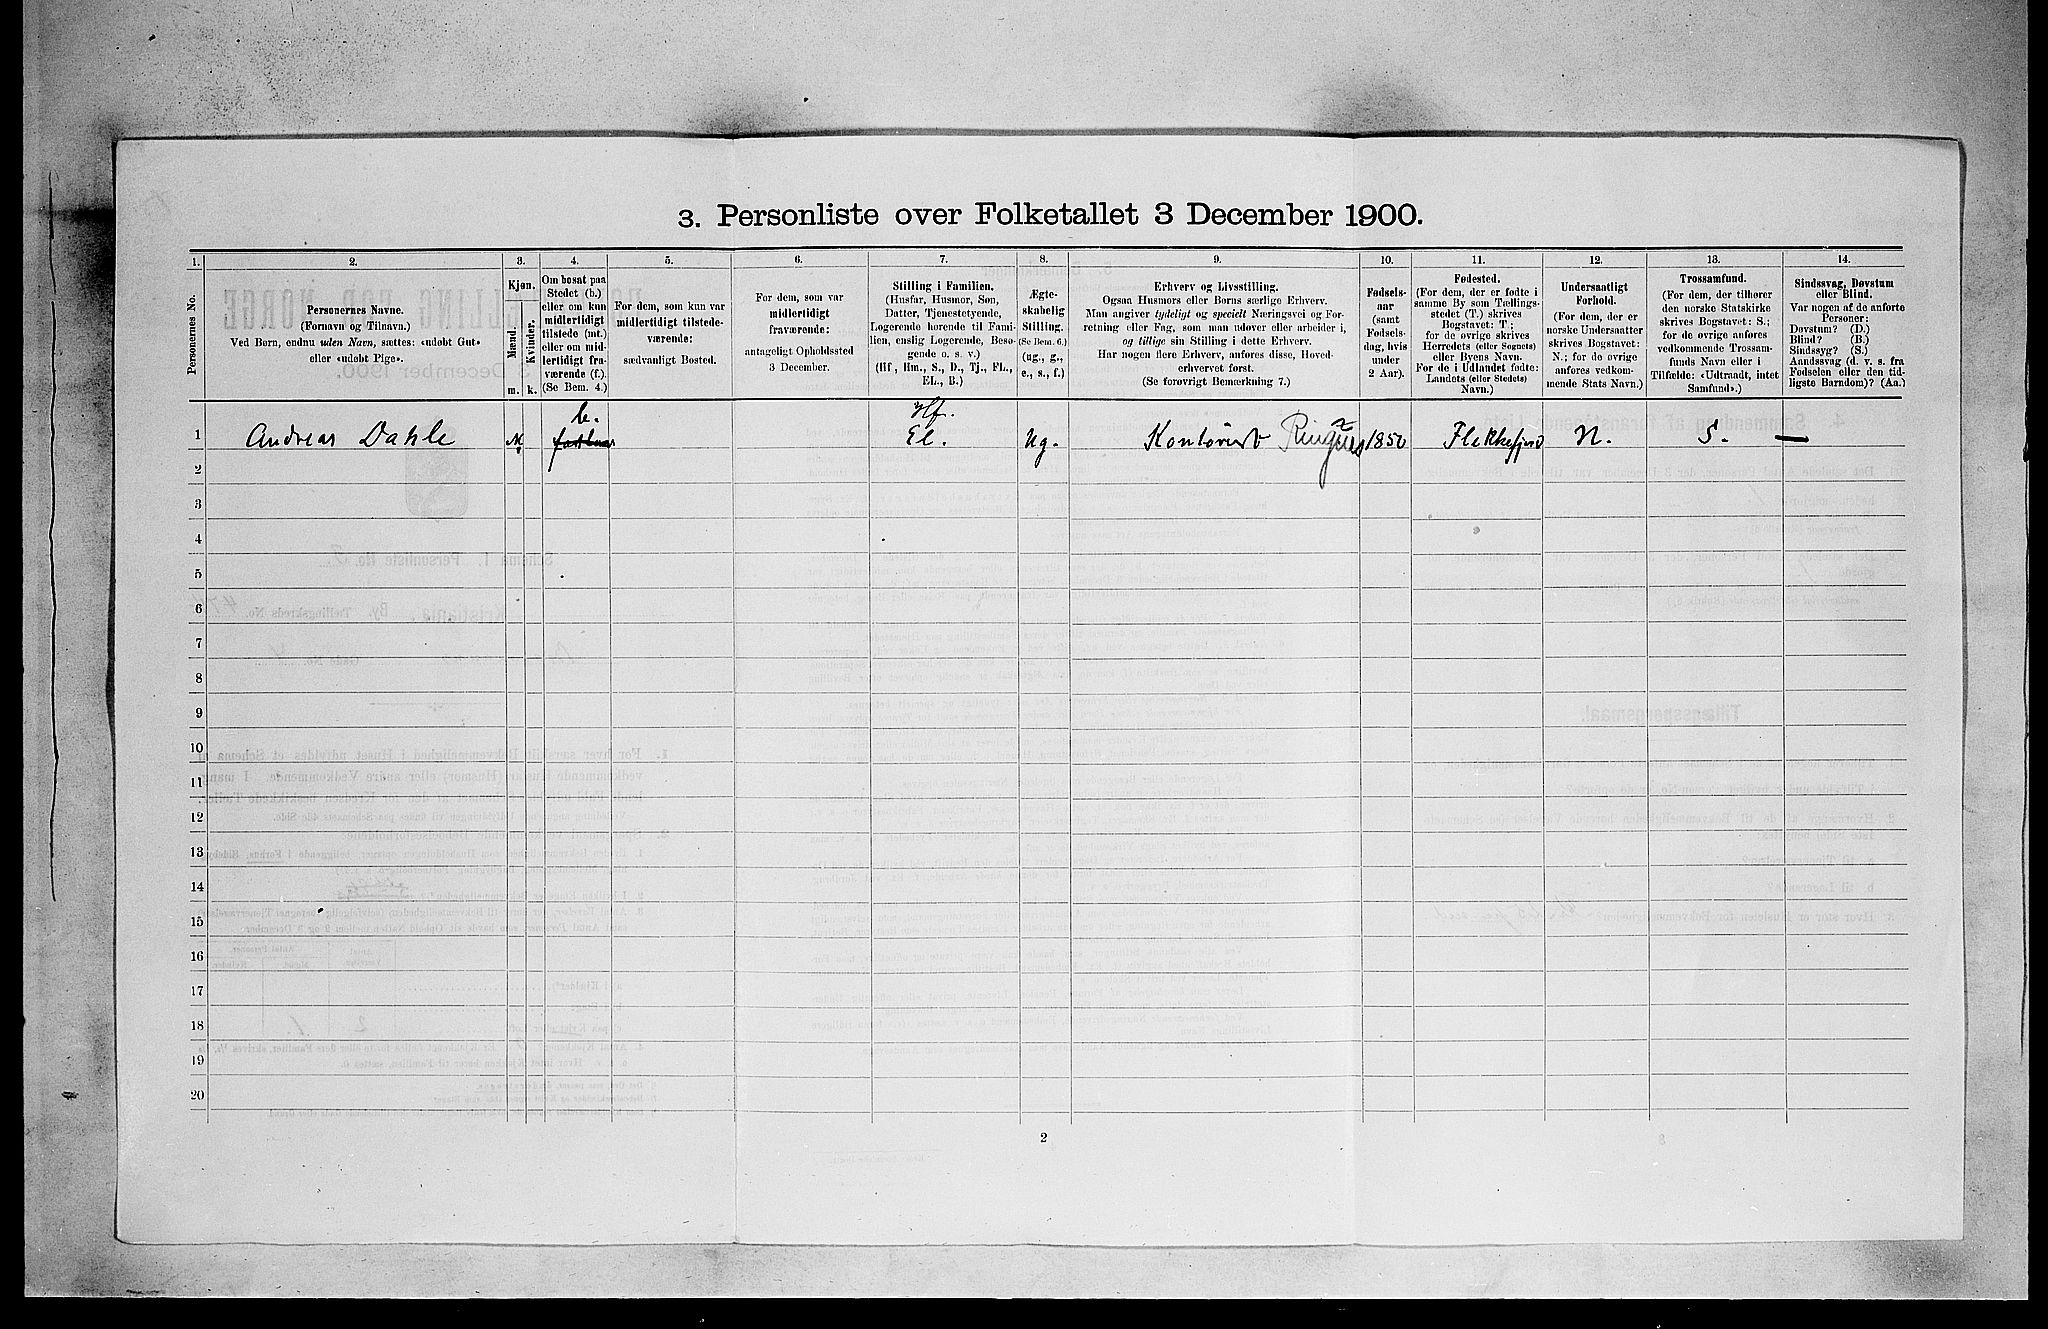 3. Personliste over Folketallet 3 December 1900.
1. 2. 3. 4. 5. 6. 7. 8. 9. 10. 11. 12. 13. 14.
Personernes No.
Personernes Navne.
(Fornavn og Tilnavn.)
Ved Børn, endnu uden Navn, sættes: «udøbt Gut»
eller «udøbt Pige».
Kjøn.
Mænd.
Kvinder.
m. k.
Om bosat paa
Stedet (b.)
eller om kun
midlertidigt
tilstede (mt.)
eller om mid-
lertidigt fra-
værende (f.).
(Se Bem. 4.)
For dem, som kun var
midlertidigt tilstede-
værende:
sædvanligt Bosted.
For dem, som var
midlertidigt
fraværende:
antageligt Opholdssted
3 December.
Stilling i Familien.
(Husfar, Husmor, Søn,
Datter, Tjenestetyende,
Logerende hørende til Fami-
lien, enslig Logerende, Besø-
gende o. s. v.)
(Hf, Hm., S., D., Tj., FL.,
EL., B.)
Ægte-
skabelig
Stilling.
(Se Bem. 6.)
(ug., g.,
e., s., f.)
Erhverv og Livsstilling.
Ogsaa Husmors eller Børns særlige Erhverv.
Man angiver tydeligt og specielt Næringsvei og For-
retning eller Fag, som man udøver eller arbeider i,
og tillige sin Stilling i dette Erhverv.
Har nogen flere Erhverv, anføres disse, Hoved-
erhvervet først.
(Se forøvrigt Bemærkning 7.)
Fødsels-
aar
(samt
Fødsels-
dag, hvis
under
2 Aar).
Fødested.
(For dem, der er fødte i
samme By som Tællings-
stedet (T.) skrives
Bogstavet: T;
for de øvrige skrives
Herredets (eller Sognets)
eller Byens Navn.
For de i Udlandet fødte:
Landets (eller Stedets)
Navn.)
Undersaatligt
Forhold.
(For dem, der er
norske Undersaatter
skrives Bogstavet:
N.; for de øvrige
anføres vedkom-
mende Stats Navn.)
Trossamfund.
(For dem, der tilhører
den norske Statskirke
skrives Bogstavet: S.;
for de øvrige anføres
vedkommende Trossam-
funds Navn eller i
Tilfælde: «Udtraadt, intet
Samfund».)
Sindssvag, Døvstum
eller Blind.
Var nogen af de anførte
Personer:
Døvstum? (D.)
Blind? (B.)
Sindssyg? (S.)
Aandssvag (d. v. s. fra
Fødselen eller den tid-
ligste Barndom)? (Aa.)
b. Hf.
1 Andreas Dahle M fastboer El. Ug. Kontorist Ringnes 1850 Flekkefjord N. S. —
2
3
4
5
6
7
8
9
10
11
12
13
14
15
16
17
18
19
20
2